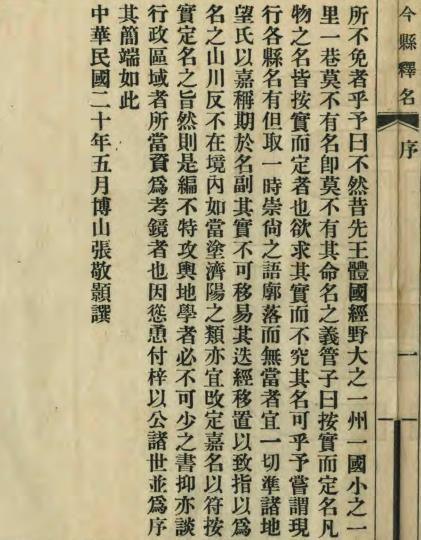 今縣釋名 序 一
所不免者乎予曰不然昔先王體國經野大之一州一國小之一
里一巷莫不有名卽莫不有其命名之義管子曰按實而定名凡
物之名皆按實而定者也欲求其實而不究其名可乎予嘗謂現
行各縣名有但取一時崇尙之語廓落而無當者宜一切準諸地
望氏以嘉稱期於名副其實不可移易其迭經移置以致指以爲
名之山川反不在境內如當塗濟陽之類亦宜改定嘉名以符按
實定名之旨然則是編不特攻輿地學者必不可少之書抑亦談
行政區域者所當資爲考鏡者也因慫恿付梓以公諸世並爲序
其簡端如此
中華民國二十年五月博山張敬顥譔